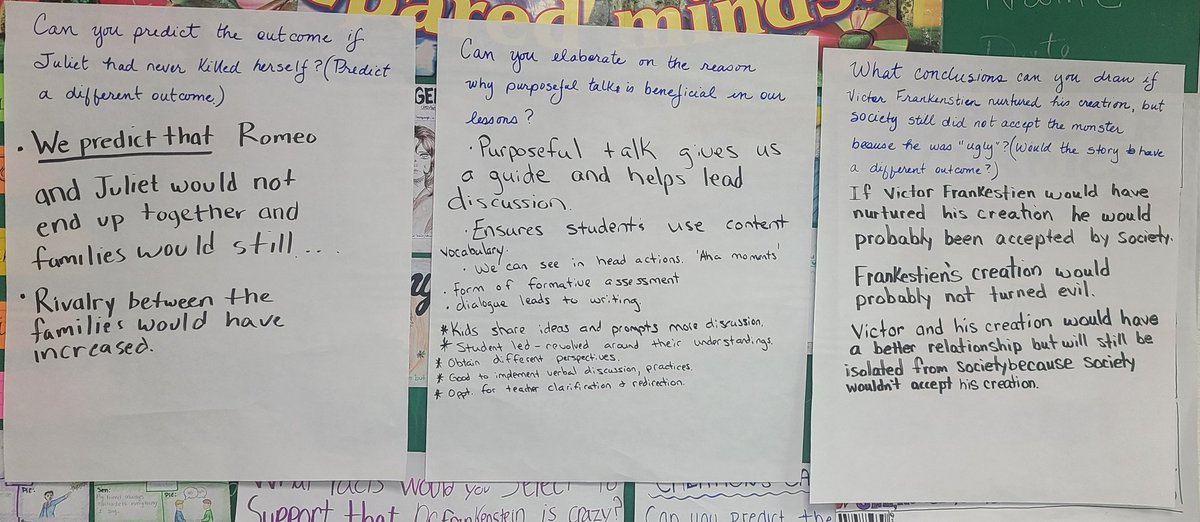 pared minds!
Name
Date
Can you predict the outcome if
Juliet had never killed herself? (Predict
a different outcome)
• We predict that Romeo
and Juliet would not
end up together and
families would still....
• Rivalry between the
families would have
increased.
Can you elaborate on the reason
why purposeful talk is beneficial in our
lessons?
• Purposeful talk gives us
a guide and helps lead
discussion.
• Ensures students use content
vocabulary.
• We can see in head actions. 'Aha moments'
• form of formative assessment
• dialogue leads to writing.
* Kids share ideas and prompts more discussion.
* Student led - revolved around their understandings.
* Obtain different perspectives.
* Good to implement verbal discussion, practices.
* Oppt. for teacher clarification & redirection.
What conclusions can you draw if
Victor Frankenstien nurtured his creation, but
society still did not accept the monster
because he was "ugly"? (Would the story have
a different outcome?)
If Victor Frankestien would have
nurtured his creation he would
probably been accepted by Society.
Frankestien's creation would
probably not turned evil.
Victor and his creation would have
a better relationship but will still be
isolated from Society because Society
wouldn't accept his creation.
Pic:
Sen:
Pic:
What facts would you select to
Support that Dr. Frankenstein is crazy?
Can you predict the